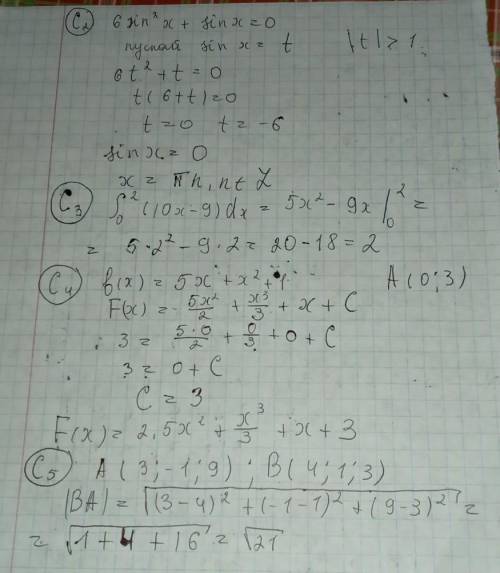 C2 6 sin²x + sin x = 0
пускай sin x = t |t| > 1
6t² + t = 0
t(6+t) = 0
t = 0 t = -6
sin x = 0
x = πn, n ∈ Z
C3 ∫₀² (10x-9)dx = 5x² - 9x |₀² =
= 5·2² - 9·2 = 20 - 18 = 2
C4 f(x) = 5x + x² + 1 A(0;3)
F(x) = 5x²/2 + x³/3 + x + C
3 = 5·0/2 + 0/3 + 0 + C
3 = 0 + C
C = 3
F(x) = 2,5x² + x³/3 + x + 3
C5 A(3;-1;9) ; B(4;1;3)
|BA| = √((3-4)² + (-1-1)² + (9-3)²) =
= √(1+4+16) = √21